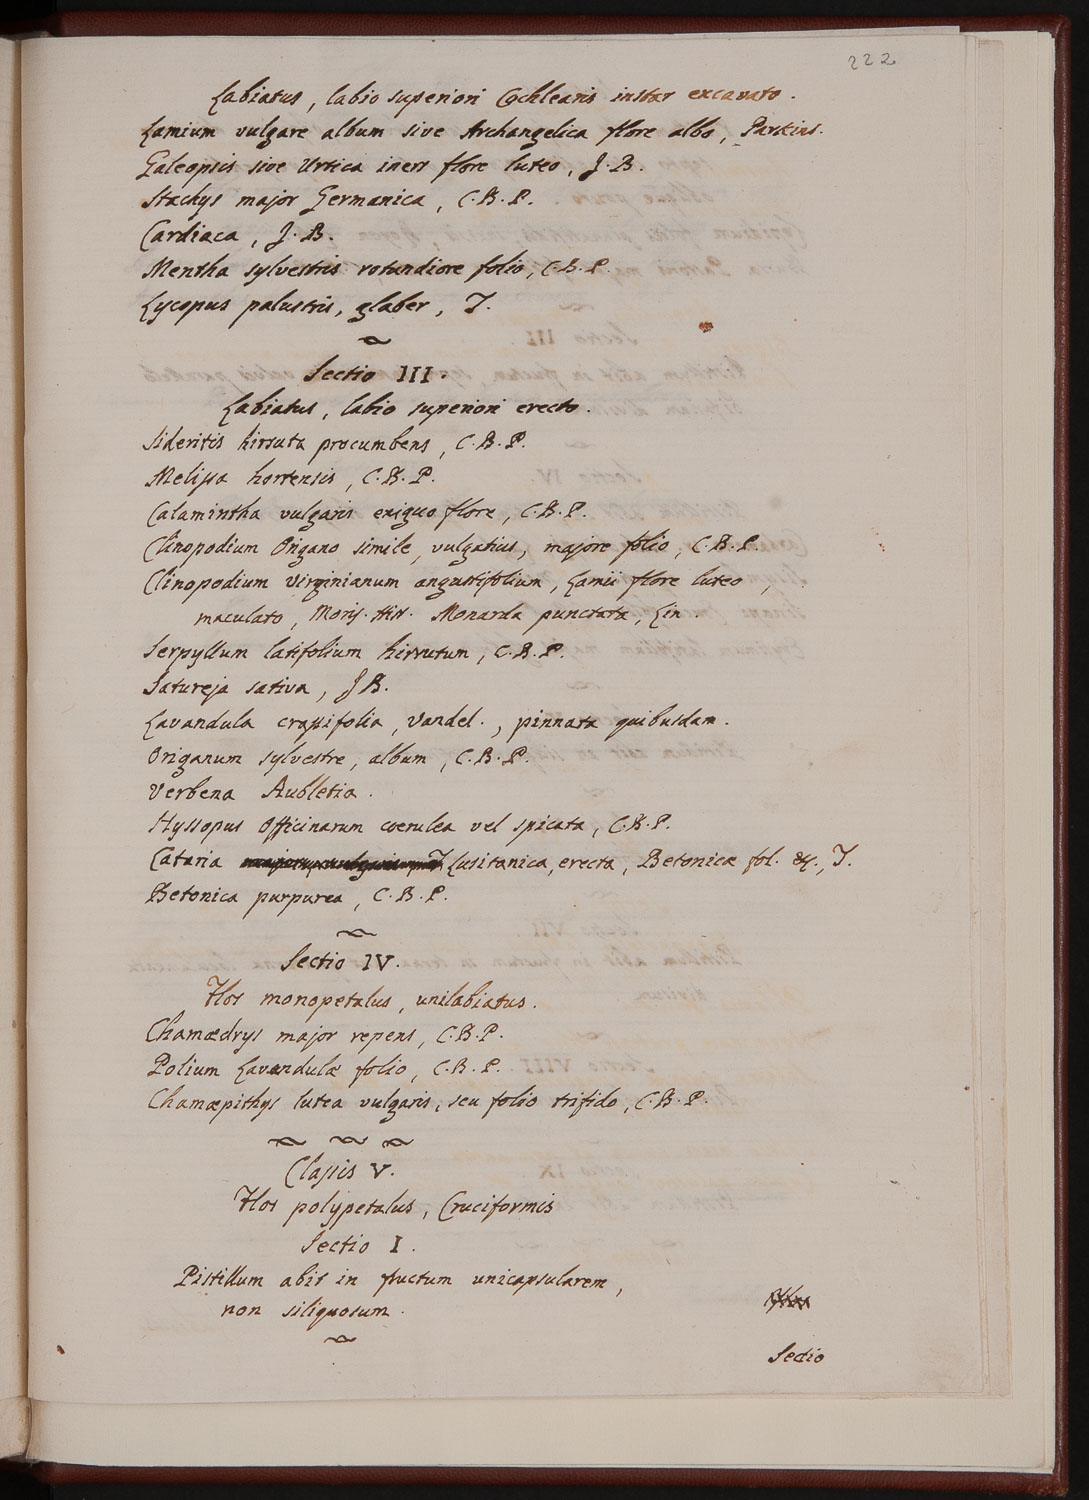 222
Labiatus, labio superiori Cochlearis instar excavato.
Lamium vulgare album sive Archangelica flore albo, Parkins.
Galeopsis sive Urtica iners flore luteo, J.B.
Stachys major Germanica, C.B.P.
Cardiaca, J.B.
Mentha sylvestris rotundiore folio, C.B.P.
Lycopus palustris, glaber, T.
Sectio III.
Labiatus, labio superiori erecto.
Sideritis hirsuta procumbens, C.B.P.
Melissa hortensis, C.B.P.
Calamintha vulgaris exiguo flore, C.B.P.
Clinopodium Origano simile, vulgatius, majore folio, C.B.P.
Clinopodium virginianum angustifolium, Lamii flore luteo,
maculato, Moris. Hist. Monarda punctata, Lin.
Serpyllum latifolium hirsutum, C.B.P.
Satureja sativa, J B.
Lavandula crassifolia, Vandel., pinnata quibusdam.
Origanum sylvestre, album, C.B.P.
Verbena Aubletia.
Hyssopus Officinarum coerulea vel spicata, C.B.P.
Cataria Lusitanica, erecta, Betonicæ fol. &c., T.
Betonica purpurea, C.B.P.
Sectio IV.
Flos monopetalus, unilabiatus.
Chamædrys major repens, C.B.P.
Polium Lavandulæ folio, C.B.P.
Chamæpithys lutea vulgaris, seu folio trifido, C.B.P.
Classis V.
Flos polypetalus, Cruciformis
Sectio I.
Pistillum abit in fructum unicapsularem,
non siliquosum.
Sectio